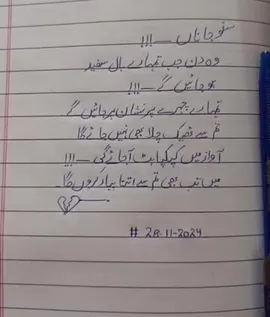 سنو جاناں ——!!!
وہ دن جب تمہارے بال سفید
ہو جائیں گے——!!!
تمہارے چہرے پر نشان پڑ جائیں گے
تم سے ٹھیک چلا بھی نہیں جائے گا
آواز میں کپکپاہٹ آ جائے گی ——!!!
میں تب بھی تم سے اتنا پیار کروں گا۔
# 28-11-2024